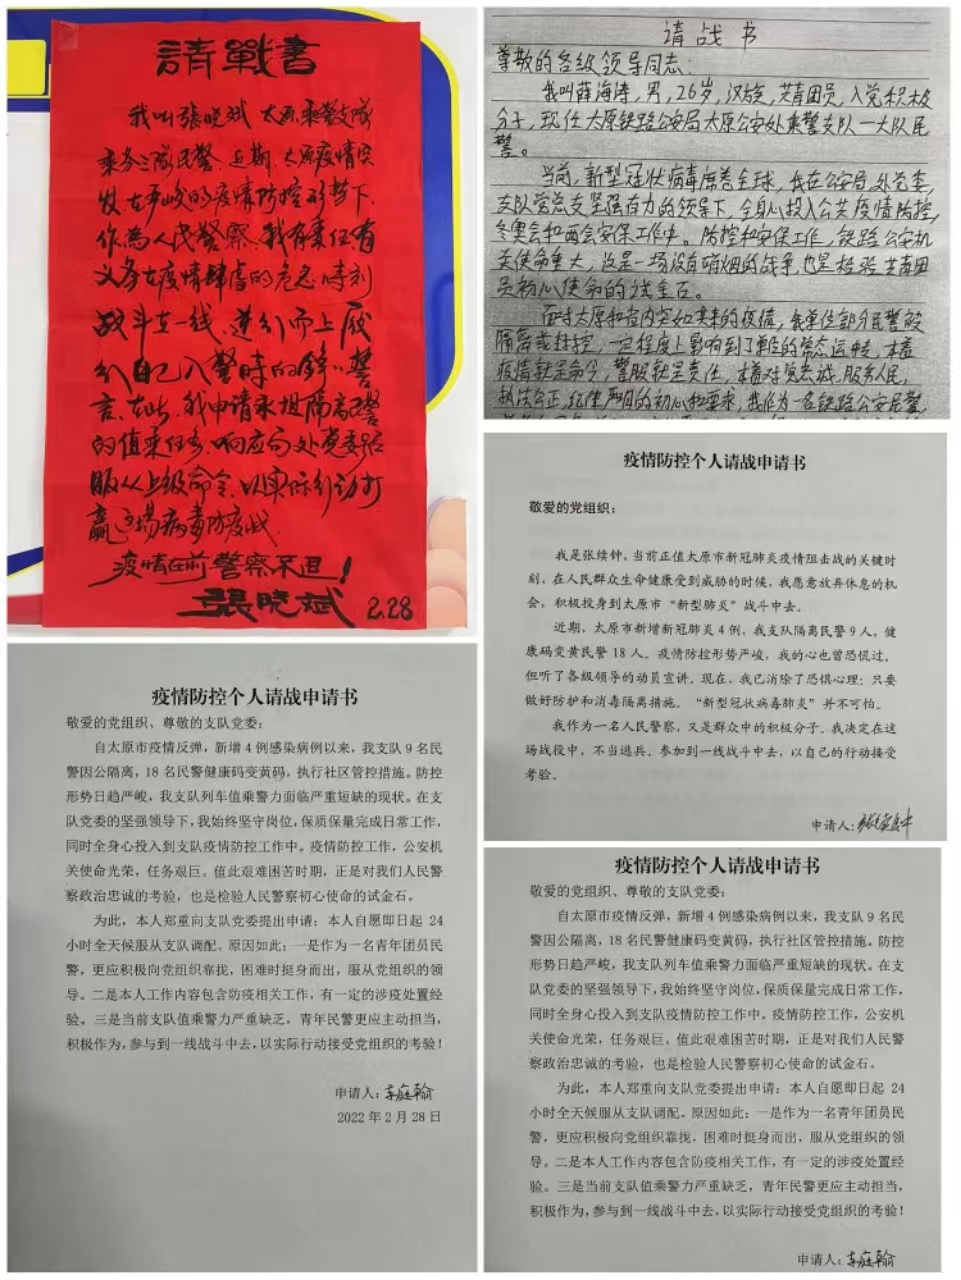 請戰書
我叫張晓斌 太原乘警支隊
乘务三隊民警.近期.太原疫情突
发.在严峻的疫情防控形势下
作為人民警察.我有責任有
义务在疫情肆虐的危急時刻
战斗在一线.逆行而上.履
行自己入警時的錚錚誓
言.在此.我申请承担隔离民警
的值乘任务.响应局处党委
服从上级命令.以实际行动打
赢这場病毒防疫战.
疫情在前 警察不退!
張晓斌 2.28
请战书
尊敬的各级领导同志:
我叫薛海涛,男,26岁,汉族,共青团员,入党积极
分子,现任太原铁路公安局太原公安处乘警支队一大队民
警。
当前,新型冠状病毒席卷全球,我在公安局、处党委,
支队党总支坚强有力的领导下,全身心投入公共疫情防控,
冬奥会和两会安保工作中。防控和安保工作,铁路公安机
关使命重大,这是一场没有硝烟的战争,也是检验共青团
员初心使命的试金石。
面对太原和省内突如其来的疫情,我单位部分民警被
隔离或封控,一定程度上影响到了单位的常态运转,本着
疫情就是命令,警服就是责任,本着对党忠诚、服务人民、
执法公正、纪律严明的初心和要求,我作为一名铁路公安民警,
疫情防控个人请战申请书
敬爱的党组织:
我是张续钟,当前正值太原市新冠肺炎疫情阻击战的关键时
刻,在人民群众生命健康受到威胁的时候,我愿意放弃休息的机
会,积极投身到太原市“新型肺炎”战斗中去。
近期,太原市新增新冠肺炎4例,我支队隔离民警9人,健
康码变黄民警18人。疫情防控形势严峻,我的心也曾恐慌过。
但听了各级领导的动员宣讲。现在,我已消除了恐惧心理:只要
做好防护和消毒隔离措施。“新型冠状病毒肺炎”并不可怕。
我作为一名人民警察,又是群众中的积极分子。我决定在这
场战役中,不当逃兵。参加到一线战斗中去,以自己的行动接受
考验。
申请人:
疫情防控个人请战申请书
敬爱的党组织、尊敬的支队党委:
自太原市疫情反弹,新增4例感染病例以来,我支队9名民
警因公隔离,18名民警健康码变黄码,执行社区管控措施。防控
形势日趋严峻,我支队列车值乘警力面临严重短缺的现状。在支
队党委的坚强领导下,我始终坚守岗位,保质保量完成日常工作,
同时全身心投入到支队疫情防控工作中。疫情防控工作,公安机
关使命光荣,任务艰巨。值此艰难困苦时期,正是对我们人民警
察政治忠诚的考验,也是检验人民警察初心使命的试金石。
为此,本人郑重向支队党委提出申请:本人自愿即日起 24
小时全天候服从支队调配。原因如此:一是作为一名青年团员民
警,更应积极向党组织靠拢,困难时挺身而出,服从党组织的领
导。二是本人工作内容包含防疫相关工作,有一定的涉疫处置经
验。三是当前支队值乘警力严重缺乏,青年民警更应主动担当,
积极作为,参与到一线战斗中去,以实际行动接受党组织的考验!
申请人:李庭翰
2022年2月28日
疫情防控个人请战申请书
敬爱的党组织、尊敬的支队党委:
自太原市疫情反弹,新增4例感染病例以来,我支队9名民
警因公隔离,18名民警健康码变黄码,执行社区管控措施。防控
形势日趋严峻,我支队列车值乘警力面临严重短缺的现状。在支
队党委的坚强领导下,我始终坚守岗位,保质保量完成日常工作,
同时全身心投入到支队疫情防控工作中。疫情防控工作,公安机
关使命光荣,任务艰巨。值此艰难困苦时期,正是对我们人民警
察政治忠诚的考验,也是检验人民警察初心使命的试金石。
为此,本人郑重向支队党委提出申请:本人自愿即日起 24
小时全天候服从支队调配。原因如此:一是作为一名青年团员民
警,更应积极向党组织靠拢,困难时挺身而出,服从党组织的领
导。二是本人工作内容包含防疫相关工作,有一定的涉疫处置经
验。三是当前支队值乘警力严重缺乏,青年民警更应主动担当,
积极作为,参与到一线战斗中去,以实际行动接受党组织的考验!
申请人:李庭翰